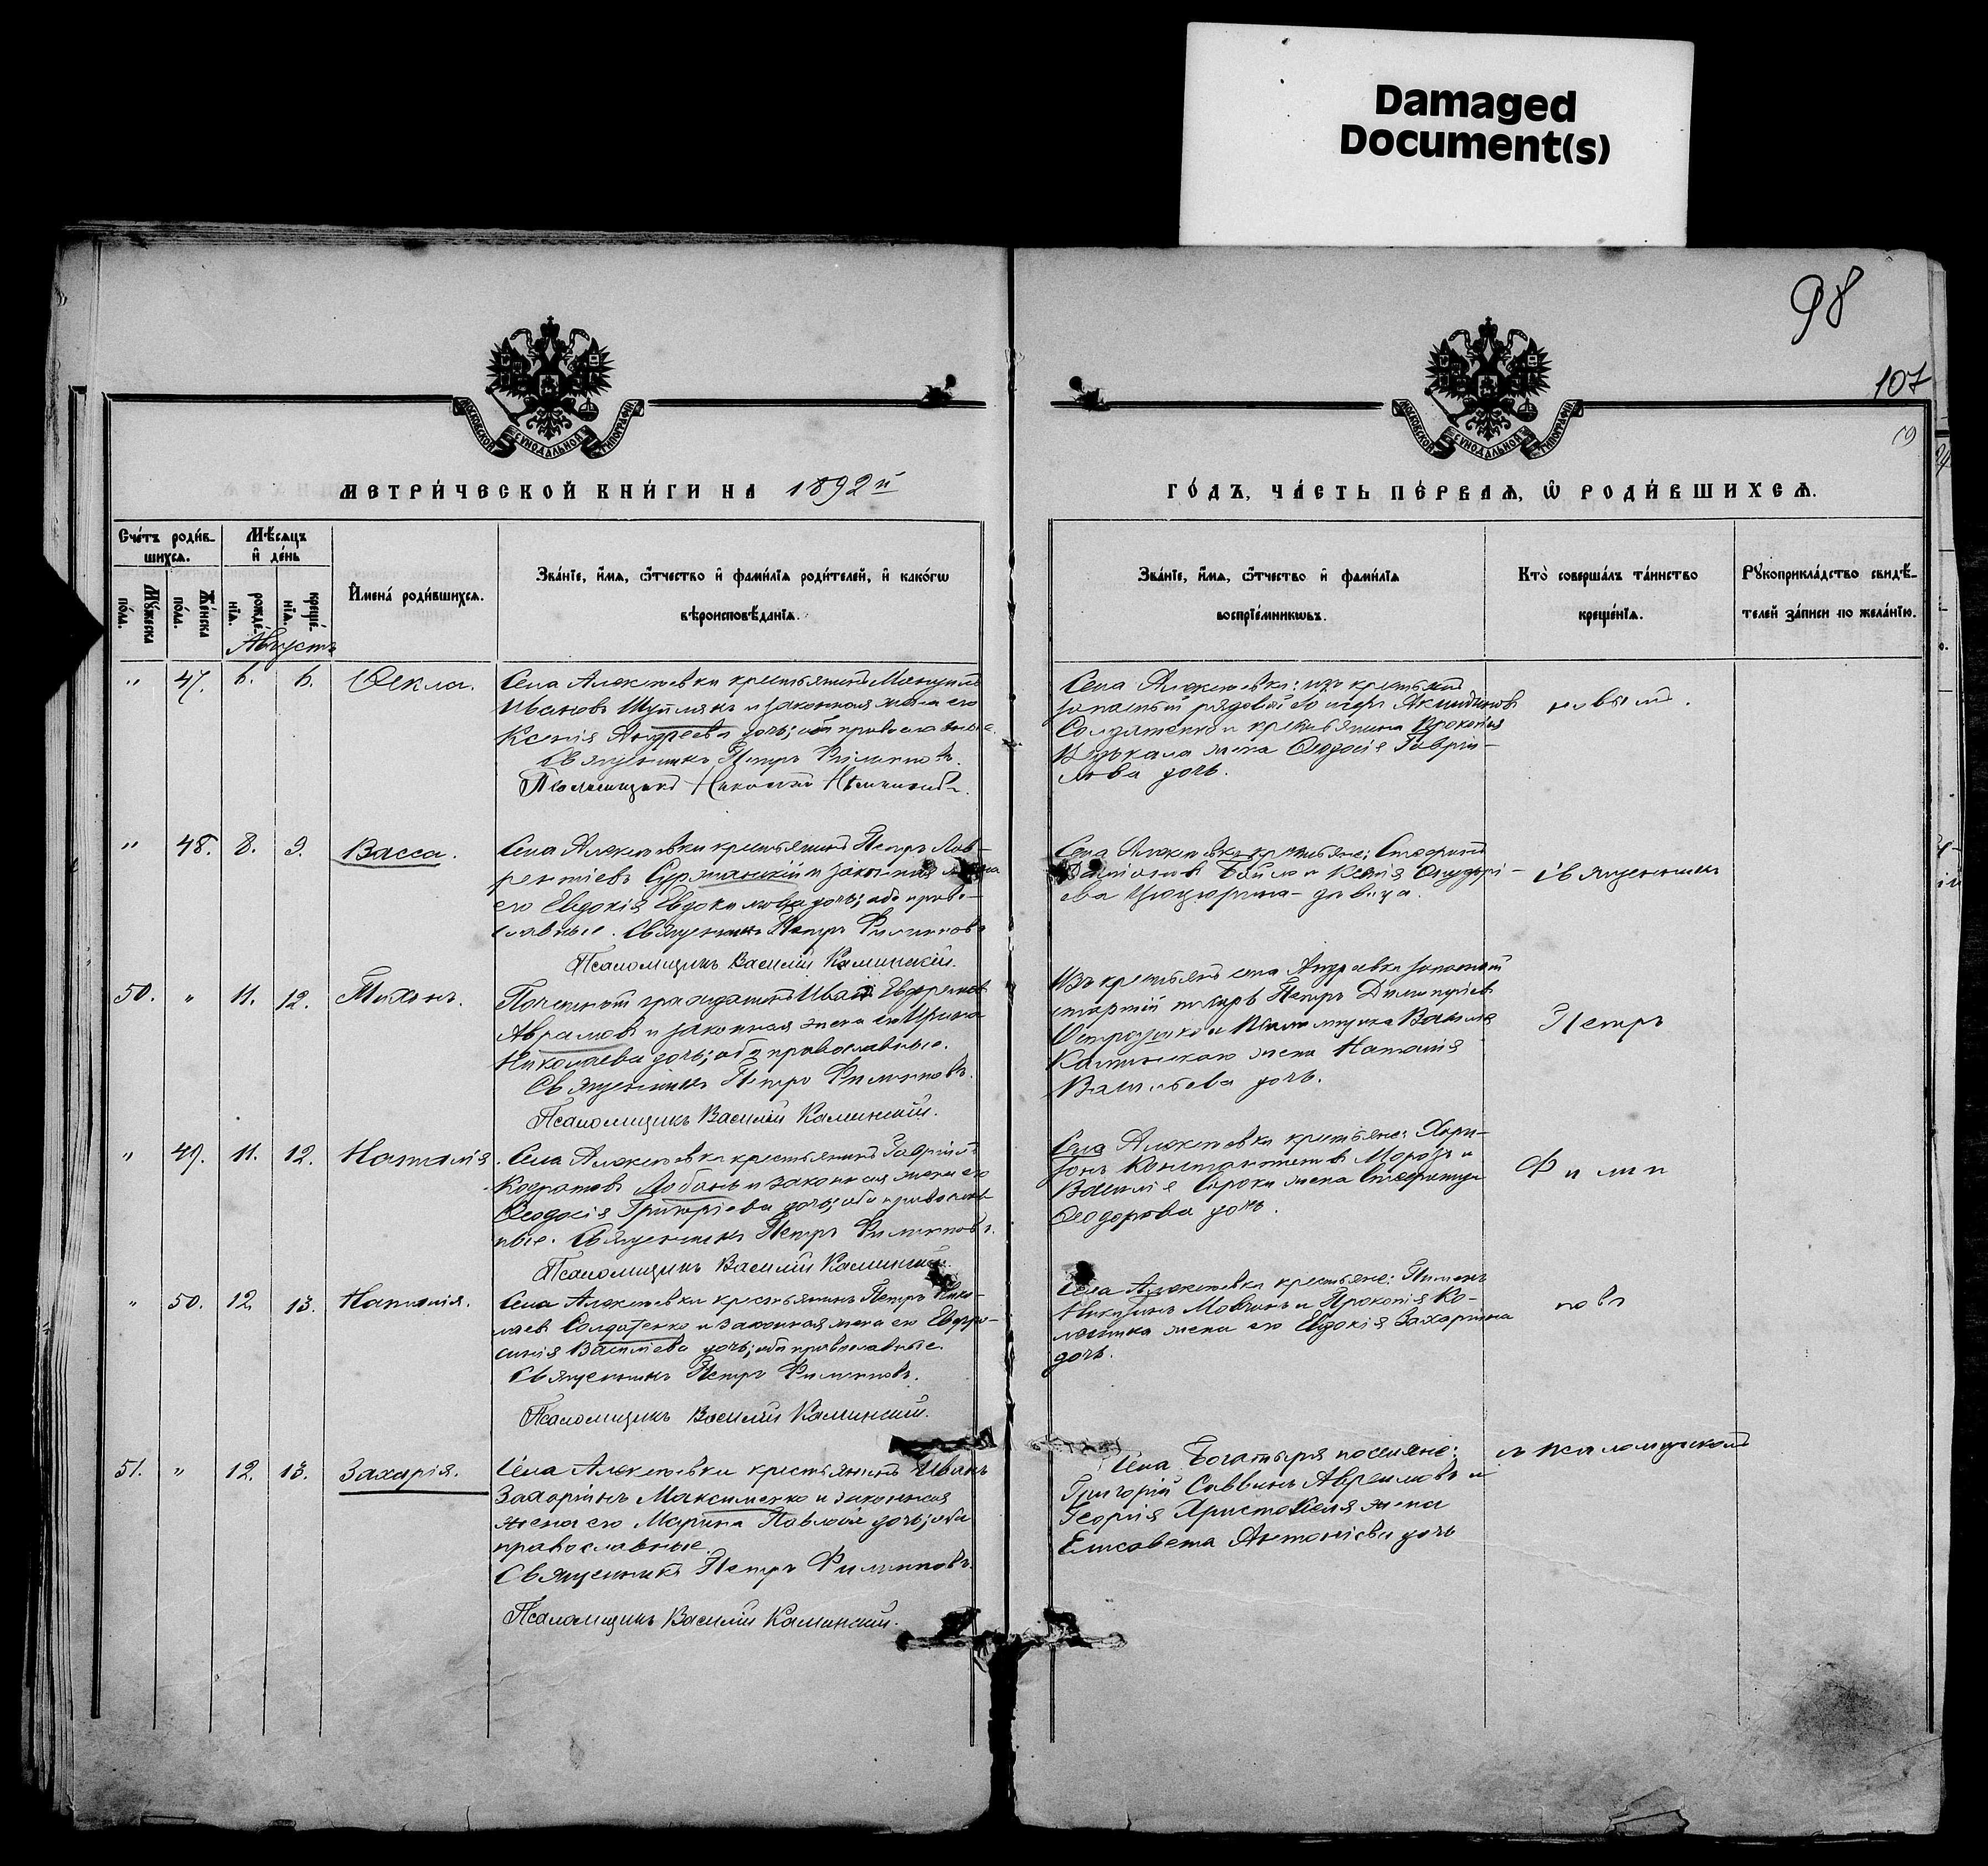 Damaged
Document(s)
98
107
МОСКОВСКОЙ СѴНОДАЛЬНОЙ ТИПОГРАФІИ
МОСКОВСКОЙ СѴНОДАЛЬНОЙ ТИПОГРАФІИ
МЕТРИ́ЧЕСКОЙ КНИ́ГИ НА 1892й
ГО́ДЪ, ЧА́СТЬ ПЕ́РВАѦ, Ѡ҆ РОДИ́ВШИХСѦ.
Сче́тъ роди́в-
шихсѧ.
Мꙋ́жеска по́ла.
Же́нска по́ла.
Мѣ́сѧцъ
и҆ де́нь
рожде́-
нїѧ.
креще́-
нїѧ.
Августъ
И҆мена̀ роди́вшихсѧ.
Зва́нїе, и҆́мѧ, ѻ҆́тчество и҆ фами́лїѧ роди́телей, и҆ како́гѡ
вѣроисповѣ́данїѧ.
Зва́нїе, и҆́мѧ, ѻ҆́тчество и҆ фами́лїѧ
воспрїе́мникѡвъ.
Кто̀ соверша́лъ та́инство
креще́нїѧ.
Рꙋкоприкла́дство свидѣ́-
телей за́писи по жела́нїю.
" 47. 6. 6. Ѳекла.
Села Алексѣевки крестьянинъ
Ивановъ и законная жена его
Ксенія Андреева дочь; оба православные.
Священникъ Петръ Филипповъ.
Псаломщикъ Николай
Села Алексѣевки: изъ крестьянъ
запасный рядовой
Солдатенко и крестьянина Прокопія
жена Ѳеодосія Гаврі-
лова дочь.
" 48. 8. 9. Васса.
Села Алексѣевки крестьянинъ Петръ Лав-
рентіевъ Суржанскій и законная жена
его Евдокія Евдокимова дочь; оба право-
славные. Священникъ Петръ Филипповъ
Псаломщикъ Василій Каминскій.
Села Алексѣевки крестьяне: Стефанъ
и Ксенія
дѣвица.
Священникъ
50. " 11. 12. Тихонъ.
Почетный гражданинъ Иванъ Евфремовъ
Аврамовъ и законная жена его Ирина
Николаева дочь; оба православные.
Священникъ Петръ Филипповъ.
Псаломщикъ Василій Каминскій.
Изъ крестьянъ села Андреевки запасный
старшій писарь Петръ Димитріевъ
и псаломщика Василія
Каминскаго жена Наталія
Васильева дочь.
Петръ
" 49. 11. 12. Наталія.
Села Алексѣевки крестьянинъ Гавріилъ
Кодратовъ Лобань и законная жена его
Ѳеодосія Григоріева дочь; оба православ-
ные. Священникъ Петръ Филипповъ.
Псаломщикъ Василій Каминскій.
Села Алексѣевки крестьяне: Хари-
тонъ Константиновъ Морозъ и
Василія Сороки жена Стефанида
Ѳеодорова дочь.
Филип
" 50. 12. 13. Наталія.
Села Алексѣевки крестьянинъ Петръ Нико-
лаевъ Солдатенко и законная жена его Евфро-
синія Василіева дочь; оба православные.
Священникъ Петръ Филипповъ.
Псаломщикъ Василій Каминскій.
Села Алексѣевки крестьяне: Пименъ
Никитинъ Мовчанъ и Прокопія Ко-
лесника жена его Евдокія Захаріина
дочь.
повъ
51. " 12. 13. Захарія.
Села Алексѣевки крестьянинъ Иванъ
Захаріинъ Максименко и законная
жена его Марина Павлова дочь; оба
православные.
Священникъ Петръ Филипповъ.
Псаломщикъ Василій Каминскій.
Села Богатыря поселяне:
Григорій Саввинъ Авраимовъ и
Георгія жена
Елисавета Антоніева дочь
съ псаломщикомъ